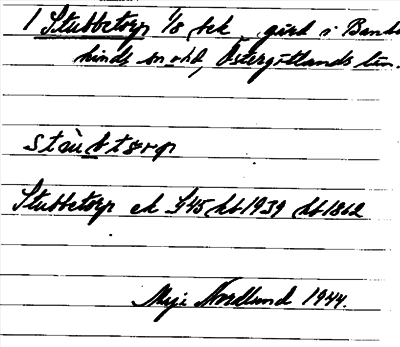 1 Stubbetorp 1/8 sek gård i Bank
hinds sn o hd, Östergötlands län.
stùbtərp
Stubbetorp ek G45 hb1939 hb1862
Nordlund 1944.